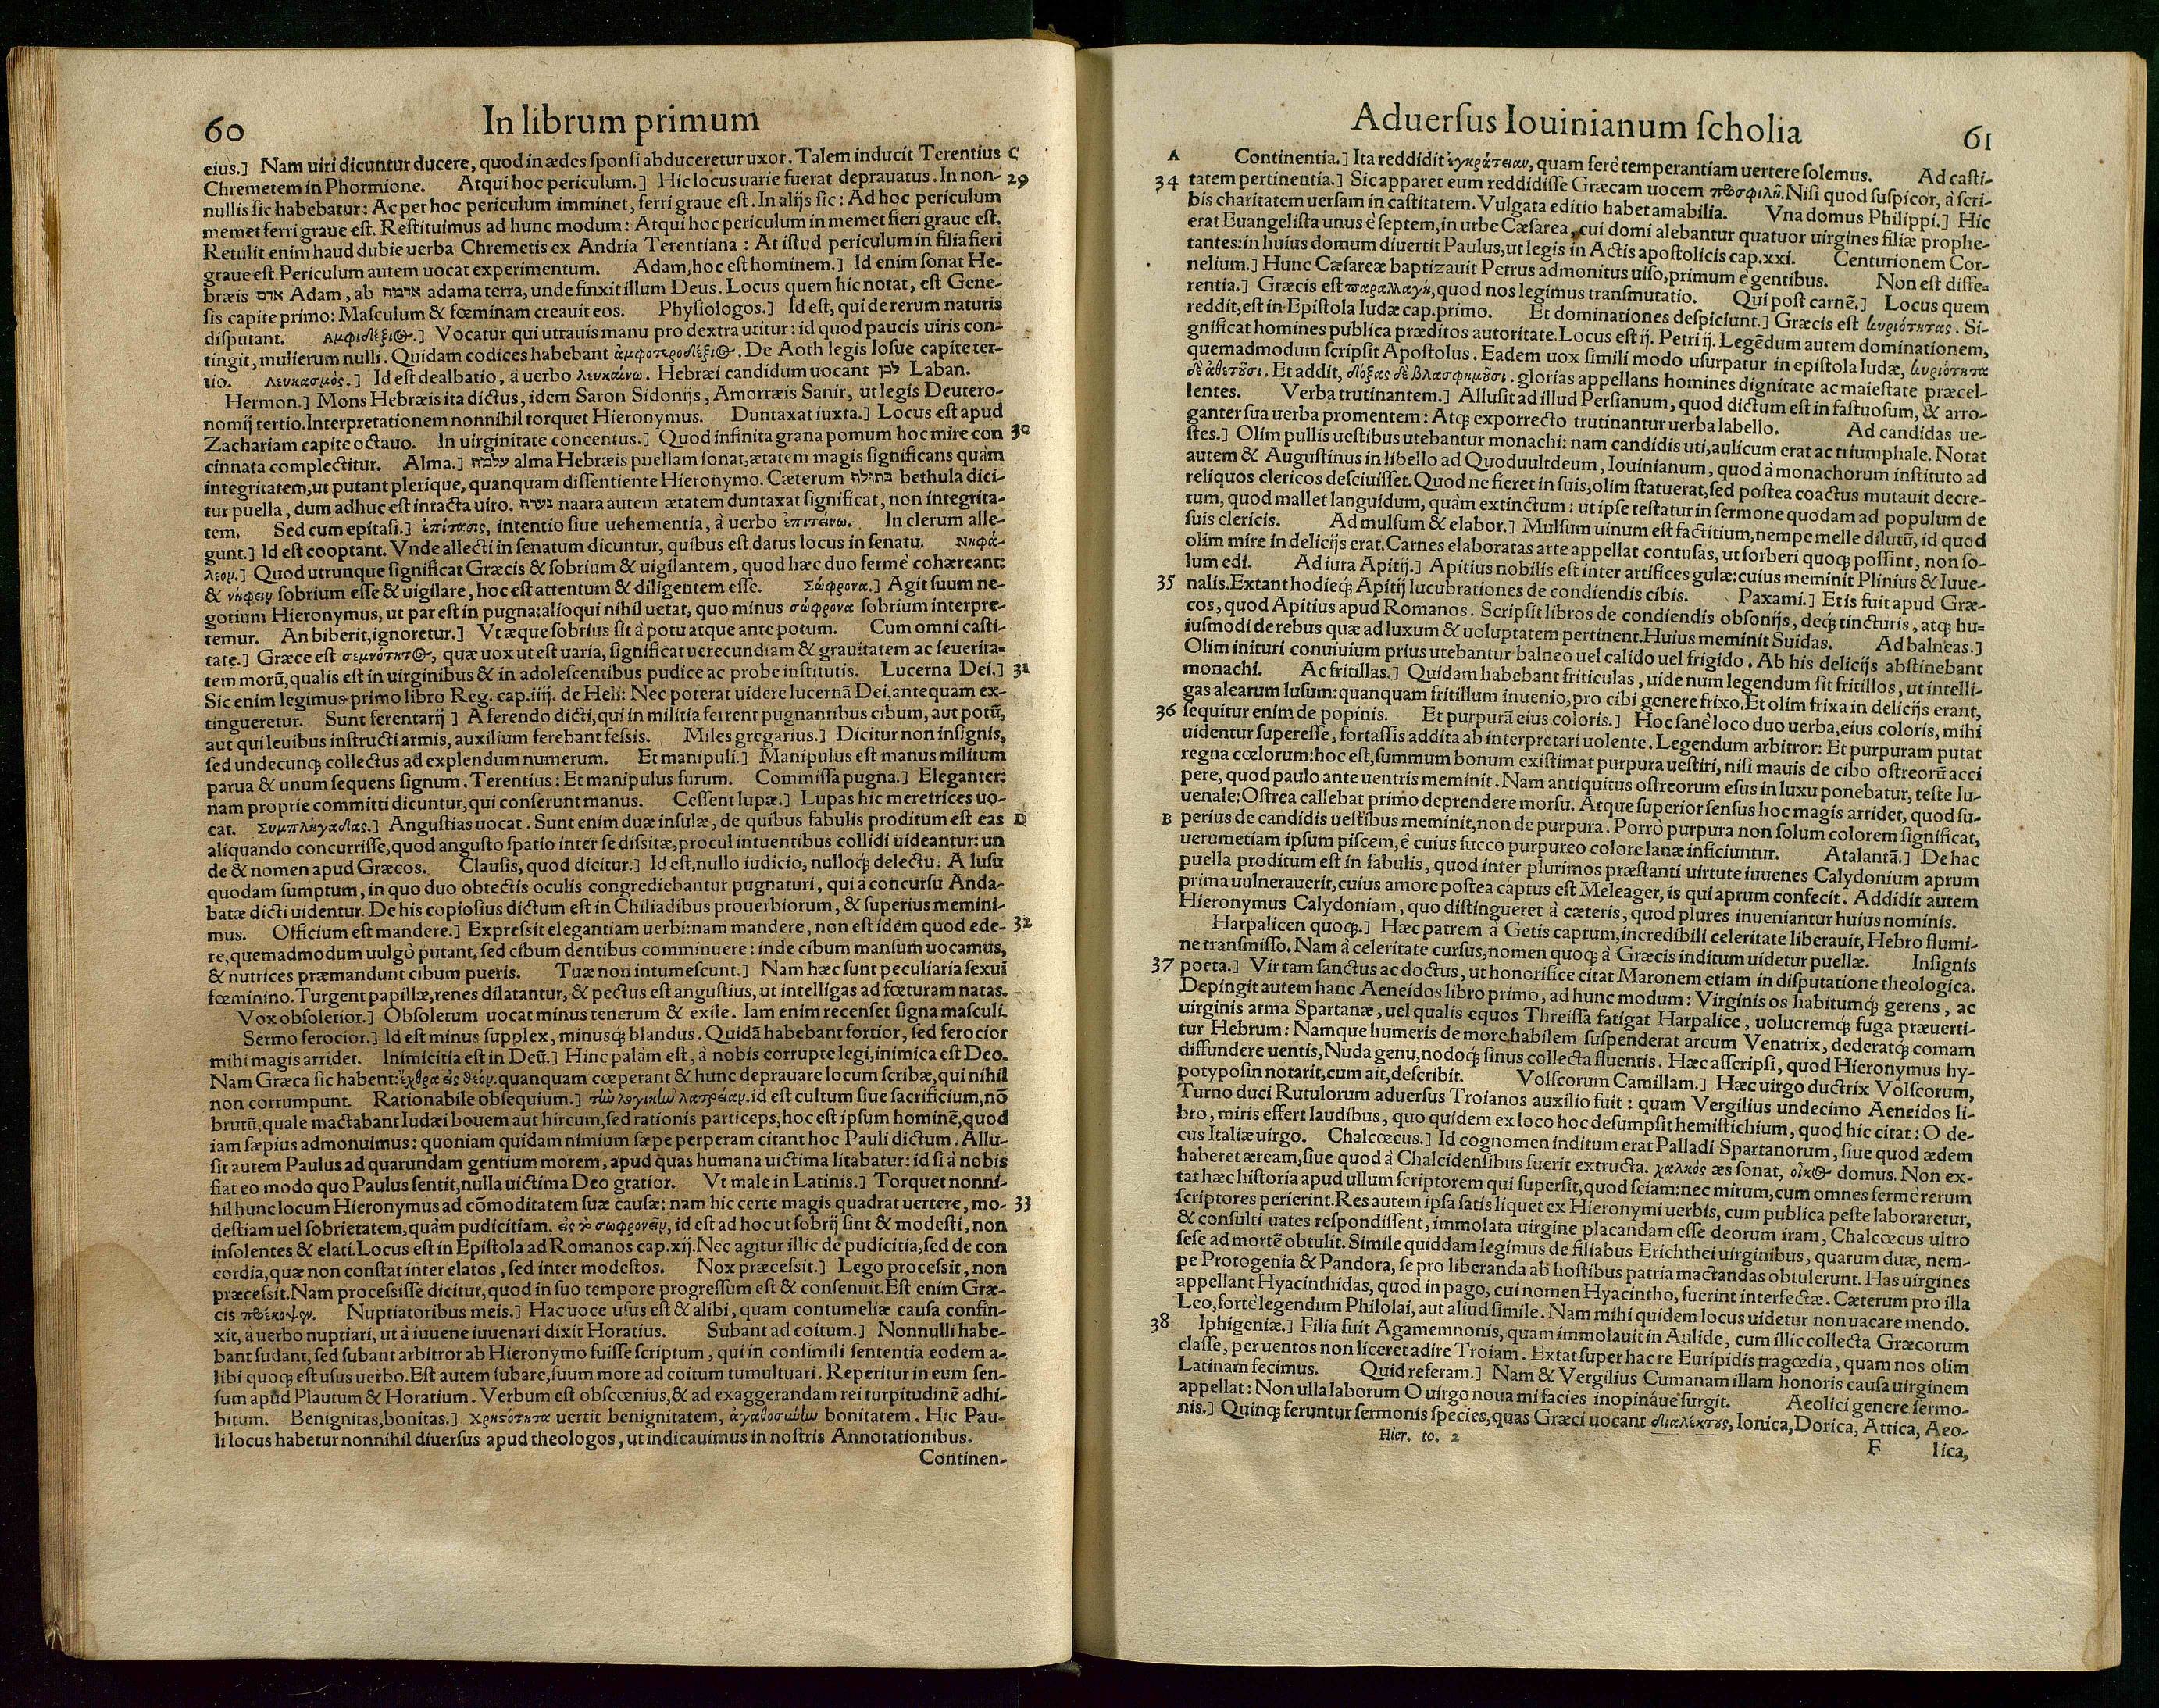 60
In librum primum
eius.] Nam uiri dicuntur ducere, quod in ædes sponsi abduceretur uxor. Talem inducit Terentius C
Chremetem in Phormione. Atqui hoc periculum.] Hic locus uarie fuerat deprauatus. In non- 29
nullis sic habebatur: Ac per hoc periculum imminet, ferri graue est. In alijs sic: Ad hoc periculum
memet ferri graue est. Restituimus ad hunc modum: Atqui hoc periculum in memet fieri graue est.
Retulit enim haud dubie uerba Chremetis ex Andria Terentiana: At istud periculum in filia fieri
graue est. Periculum autem uocat experimentum. Adam, hoc est hominem.] Id enim sonat He-
bræis אדם Adam, ab אדמה adama terra, unde finxit illum Deus. Locus quem hic notat, est Gene-
sis capite primo: Masculum & fœminam creauit eos. Physiologos.] Id est, qui de rerum naturis
disputant. Αμφιδέξιος.] Vocatur qui utrauis manu pro dextra utitur: id quod paucis uiris con-
tingit, mulierum nulli. Quidam codices habebant ἀμφοτεροδέξιος. De Aoth legis Iosue capite ter-
tio. Λευκασμὸς.] Id est dealbatio, à uerbo λευκαίνω. Hebræi candidum uocant לבן Laban.
Hermon.] Mons Hebræis ita dictus, idem Saron Sidonijs, Amorræis Sanir, ut legis Deutero-
nomij tertio. Interpretationem nonnihil torquet Hieronymus. Duntaxat iuxta.] Locus est apud
Zachariam capite octauo. In uirginitate concentus.] Quod infinita grana pomum hoc mire con 30
cinnata complectitur. Alma.] עלמה alma Hebræis puellam sonat, ætatem magis significans quàm
integritatem, ut putant plerique, quanquam dissentiente Hieronymo. Cæterum בתולה bethula dici-
tur puella, dum adhuc est intacta uiro. נערה naara autem ætatem duntaxat significat, non integrita-
tem. Sed cum epitasi.] ἐπίτασις, intentio siue uehementia, à uerbo ἐπιτείνω. In clerum alle-
gunt.] Id est cooptant. Vnde allecti in senatum dicuntur, quibus est datus locus in senatu. Νηφά-
λεον.] Quod utrunque significat Græcis & sobrium & uigilantem, quod hæc duo fermè cohæreant:
& νήφειν sobrium esse & uigilare, hoc est attentum & diligentem esse. Σώφρονα.] Agit suum ne-
gotium Hieronymus, ut par est in pugna: alioqui nihil uetat, quo minus σώφρονα sobrium interpre-
temur. An biberit, ignoretur.] Vt æque sobrius sit à potu atque ante potum. Cum omni casti-
tate.] Græce est σεμνότητος, quæ uox ut est uaria, significat uerecundiam & grauitatem ac seuerita-
tem morũ, qualis est in uirginibus & in adolescentibus pudice ac probe institutis. Lucerna Dei.] 31
Sic enim legimus primo libro Reg. cap. iiij. de Heli: Nec poterat uidere lucernã Dei, antequam ex-
tingueretur. Sunt ferentarij] A ferendo dicti, qui in militia ferrent pugnantibus cibum, aut potũ,
aut qui leuibus instructi armis, auxilium ferebant fessis. Miles gregarius.] Dicitur non insignis,
sed undecunq; collectus ad explendum numerum. Et manipuli.] Manipulus est manus militum
parua & unum sequens signum. Terentius: Et manipulus furum. Commissa pugna.] Eleganter:
nam proprie committi dicuntur, qui conserunt manus. Cessent lupæ.] Lupas hic meretrices uo-
cat. Συμπληγάδας.] Angustias uocat. Sunt enim duæ insulæ, de quibus fabulis proditum est eas D
aliquando concurrisse, quod angusto spatio inter se dissitæ, procul intuentibus collidi uideantur: un
de & nomen apud Græcos. Clausis, quod dicitur.] Id est, nullo iudicio, nulloq; delectu. A lusu
quodam sumptum, in quo duo obtectis oculis congrediebantur pugnaturi, qui à concursu Anda-
batæ dicti uidentur. De his copiosius dictum est in Chiliadibus prouerbiorum, & superius memini-
mus. Officium est mandere.] Expressit elegantiam uerbi: nam mandere, non est idem quod ede- 32
re, quemadmodum uulgò putant, sed cibum dentibus comminuere: inde cibum mansum uocamus,
& nutrices præmandunt cibum pueris. Tuæ non intumescunt.] Nam hæc sunt peculiaria sexui
fœminino. Turgent papillæ, renes dilatantur, & pectus est angustius, ut intelligas ad fœturam natas.
Vox obsoletior.] Obsoletum uocat minus tenerum & exile. Iam enim recenset signa masculi.
Sermo ferocior.] Id est minus supplex, minusq; blandus. Quidã habebant fortior, sed ferocior
mihi magis arridet. Inimicitia est in Deũ.] Hinc palàm est, à nobis corrupte legi, inimica est Deo.
Nam Græca sic habent: ἔχθρα εἰς θεόν. quanquam cœperant & hunc deprauare locum scribæ, qui nihil
non corrumpunt. Rationabile obsequium.] τὴν λογικὴν λατρείαν. id est cultum siue sacrificium, nõ
brutũ, quale mactabant Iudæi bouem aut hircum, sed rationis particeps, hoc est ipsum hominẽ, quod
iam sæpius admonuimus: quoniam quidam nimium sæpe perperam citant hoc Pauli dictum. Allu-
sit autem Paulus ad quarundam gentium morem, apud quas humana uictima litabatur: id si à nobis
fiat eo modo quo Paulus sentit, nulla uictima Deo gratior. Vt male in Latinis.] Torquet nonni-
hil hunc locum Hieronymus ad cõmoditatem suæ causæ: nam hic certe magis quadrat uertere, mo- 33
destiam uel sobrietatem, quàm pudicitiam. εἰς τὸ σωφρονεῖν, id est ad hoc ut sobrij sint & modesti, non
insolentes & elati. Locus est in Epistola ad Romanos cap. xij. Nec agitur illic de pudicitia, sed de con
cordia, quæ non constat inter elatos, sed inter modestos. Nox præcessit.] Lego processit, non
præcessit. Nam processisse dicitur, quod in suo tempore progressum est & consenuit. Est enim Græ-
cis προέκοψεν. Nuptiatoribus meis.] Hac uoce usus est & alibi, quam contumeliæ causa confin-
xit, à uerbo nuptiari, ut à iuuene iuuenari dixit Horatius. Subant ad coitum.] Nonnulli habe-
bant sudant, sed subant arbitror ab Hieronymo fuisse scriptum, qui in consimili sententia eodem a-
libi quoq; est usus uerbo. Est autem subare, suum more ad coitum tumultuari. Reperitur in eum sen-
sum apud Plautum & Horatium. Verbum est obscœnius, & ad exaggerandam rei turpitudinẽ adhi-
bitum. Benignitas, bonitas.] χρηστότητα uertit benignitatem, ἀγαθοσύνην bonitatem. Hic Pau-
li locus habetur nonnihil diuersus apud theologos, ut indicauimus in nostris Annotationibus.
Continen-
Aduersus Iouinianum scholia
61
A Continentia.] Ita reddidit ἐγκράτειαν, quam ferè temperantiam uertere solemus. Ad casti-
34 tatem pertinentia.] Sic apparet eum reddidisse Græcam uocem προσφιλῆ. Nisi quod suspicor, à scri-
bis charitatem uersam in castitatem. Vulgata editio habet amabilia. Vna domus Philippi.] Hic
erat Euangelista unus è septem, in urbe Cæsarea, cui domi alebantur quatuor uirgines filiæ prophe-
tantes: in huius domum diuertit Paulus, ut legis in Actis apostolicis cap. xxi. Centurionem Cor-
nelium.] Hunc Cæsareæ baptizauit Petrus admonitus uiso, primum è gentibus. Non est diffe-
rentia.] Græcis est παραλλαγὴ, quod nos legimus transmutatio. Qui post carnẽ.] Locus quem
reddit, est in Epistola Iudæ cap. primo. Et dominationes despiciunt.] Græcis est κυριότητας. Si-
gnificat homines publica præditos autoritate. Locus est ij. Petri ij. Legẽdum autem dominationem,
quemadmodum scripsit Apostolus. Eadem uox simili modo usurpatur in epistola Iudæ, κυριότητα
δὲ ἀθετοῦσι. Et addit, δόξας δὲ βλασφημοῦσι. glorias appellans homines dignitate ac maiestate præcel-
lentes. Verba trutinantem.] Allusit ad illud Persianum, quod dictum est in fastuosum, & arro-
ganter sua uerba promentem: Atq; exporrecto trutinantur uerba labello. Ad candidas ue-
stes.] Olim pullis uestibus utebantur monachi: nam candidis uti, aulicum erat ac triumphale. Notat
autem & Augustinus in libello ad Quoduultdeum, Iouinianum, quod à monachorum instituto ad
reliquos clericos desciuisset. Quod ne fieret in suis, olim statuerat, sed postea coactus mutauit decre-
tum, quod mallet languidum, quàm extinctum: ut ipse testatur in sermone quodam ad populum de
suis clericis. Ad mulsum & elabor.] Mulsum uinum est factitium, nempe melle dilutũ, id quod
olim mire in delicijs erat. Carnes elaboratas arte appellat contusas, ut sorberi quoq; possint, non so-
lum edi. Ad iura Apitij.] Apitius nobilis est inter artifices gulæ: cuius meminit Plinius & Iuue-
35 nalis. Extant hodieq; Apitij lucubrationes de condiendis cibis. Paxami.] Et is fuit apud Græ-
cos, quod Apitius apud Romanos. Scripsit libros de condiendis obsonijs, deq; tincturis, atq; hu-
iusmodi de rebus quæ ad luxum & uoluptatem pertinent. Huius meminit Suidas. Ad balneas.]
Olim inituri conuiuium prius utebantur balneo uel calido uel frigido. Ab his delicijs abstinebant
monachi. Ac fritillas.] Quidam habebant friticulas, uide num legendum sit fritillos, ut intelli-
gas alearum lusum: quanquam fritillum inuenio, pro cibi genere frixo. Et olim frixa in delicijs erant,
36 sequitur enim de popinis. Et purpurã eius coloris.] Hoc sanè loco duo uerba, eius coloris, mihi
uidentur superesse, fortassis addita ab interpretari uolente. Legendum arbitror: Et purpuram putat
regna cœlorum: hoc est, summum bonum existimat purpura uestiri, nisi mauis de cibo ostreorũ acci
pere, quod paulo ante uentris meminit. Nam antiquitus ostreorum esus in luxu ponebatur, teste Iu-
uenale: Ostrea callebat primo deprendere morsu. Atque superior sensus hoc magis arridet, quod su-
B perius de candidis uestibus meminit, non de purpura. Porrò purpura non solum colorem significat,
uerumetiam ipsum piscem, è cuius succo purpureo colore lanæ inficiuntur. Atalantã.] De hac
puella proditum est in fabulis, quod inter plurimos præstanti uirtute iuuenes Calydonium aprum
prima uulnerauerit, cuius amore postea captus est Meleager, is qui aprum confecit. Addidit autem
Hieronymus Calydoniam, quo distingueret à cæteris, quod plures inueniantur huius nominis.
Harpalicen quoq;.] Hæc patrem à Getis captum, incredibili celeritate liberauit, Hebro flumi-
ne transmisso. Nam à celeritate cursus, nomen quoq; à Græcis inditum uidetur puellæ. Insignis
37 poeta.] Vir tam sanctus ac doctus, ut honorifice citat Maronem etiam in disputatione theologica.
Depingit autem hanc Aeneidos libro primo, ad hunc modum: Virginis os habitumq; gerens, ac
uirginis arma Spartanæ, uel qualis equos Threissa fatigat Harpalice, uolucremq; fuga præuerti-
tur Hebrum: Namque humeris de more habilem suspenderat arcum Venatrix, dederatq; comam
diffundere uentis, Nuda genu, nodoq; sinus collecta fluentis. Hæc asscripsi, quod Hieronymus hy-
potyposin notarit, cum ait, describit. Volscorum Camillam.] Hæc uirgo ductrix Volscorum,
Turno duci Rutulorum aduersus Troianos auxilio fuit: quam Vergilius undecimo Aeneidos li-
bro, miris effert laudibus, quo quidem ex loco hoc desumpsit hemistichium, quod hic citat: O de-
cus Italiæ uirgo. Chalcœcus.] Id cognomen inditum erat Palladi Spartanorum, siue quod ædem
haberet æream, siue quod à Chalcidensibus fuerit extructa. χαλκὸς æs sonat, οἶκος domus. Non ex-
tat hæc historia apud ullum scriptorem qui supersit, quod sciam: nec mirum, cum omnes fermè rerum
scriptores perierint. Res autem ipsa satis liquet ex Hieronymi uerbis, cum publica peste laboraretur,
& consulti uates respondissent, immolata uirgine placandam esse deorum iram, Chalcœcus ultro
sese ad mortẽ obtulit. Simile quiddam legimus de filiabus Erichthei uirginibus, quarum duæ, nem-
pe Protogenia & Pandora, se pro liberanda ab hostibus patria mactandas obtulerunt. Has uirgines
appellant Hyacinthidas, quod in pago, cui nomen Hyacintho, fuerint interfectæ. Cæterum pro illa
Leo, fortè legendum Philolai, aut aliud simile. Nam mihi quidem locus uidetur non uacare mendo.
38 Iphigeniæ.] Filia fuit Agamemnonis, quam immolauit in Aulide, cum illic collecta Græcorum
classe, per uentos non liceret adire Troiam. Extat super hac re Euripidis tragœdia, quam nos olim
Latinam fecimus. Quid referam.] Nam & Vergilius Cumanam illam honoris causa uirginem
appellat: Non ulla laborum O uirgo noua mi facies inopináue surgit. Aeolici genere sermo-
nis.] Quinq; feruntur sermonis species, quas Græci uocant διαλέκτους, Ionica, Dorica, Attica, Aeo-
Hier. to. 2 F lica,